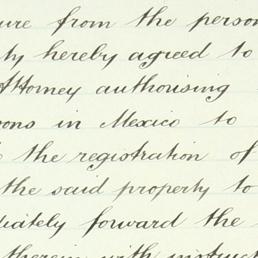 ure from the person
ty hereby agreed to
Attorney authorising
ons in Mexico to
the registration of
the said property to
diately forward the
therein with instruct